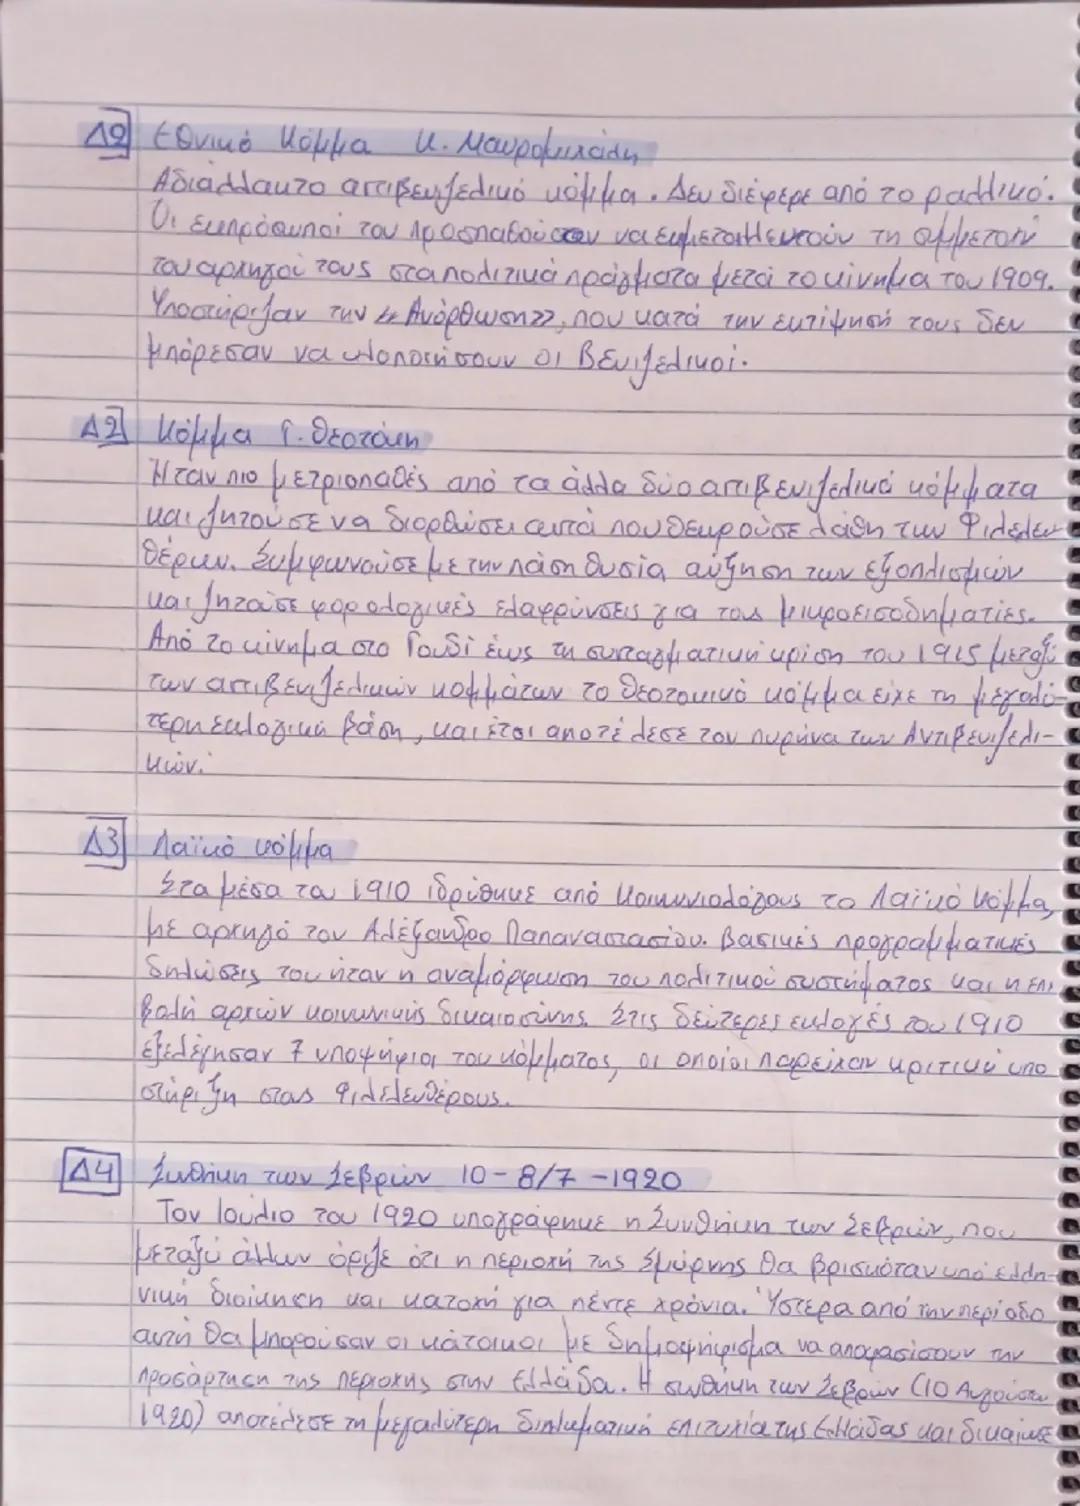 Δ2 Εθνικό Κόμμα Κ. Μαυρομιχάλη
Αδιάλλακτο αντιβενιζελικό κόμμα. Δεν διέφερε από το ραλλικό.
Οι εκπρόσωποι του προσπαθούσαν να εκμεταλλευτούν τη συμμετοχή
του αρχηγού τους στα πολιτικά πράγματα μετά το κίνημα του 1909.
Υποστήριζαν την «Ανόρθωση», που κατά την εκτίμησή τους δεν
μπόρεσαν να υλοποιήσουν οι Βενιζελικοί.
Δ2 Κόμμα Γ. Θεοτόκη
Ήταν πιο μετριοπαθές από τα άλλα δύο αντιβενιζελικά κόμματα
και ζητούσε να διορθώσει αυτά που θεωρούσε λάθη των Φιλελευ-
θέρων. Συμφωνούσε με την πάση θυσία αύξηση των εξοπλισμών
και ζητούσε φορολογικές ελαφρύνσεις για τους μικροεισοδηματίες.
Από το κίνημα στο Γουδί έως τη συνταγματική κρίση του 1915 μεταξύ
των αντιβενιζελικών κομμάτων το Θεοτοκικό κόμμα είχε τη μεγαλύ-
τερη εκλογική βάση, και έτσι αποτέλεσε τον πυρήνα των Αντιβενιζελι-
κών.
Δ3 Λαϊκό κόμμα
Στα μέσα του 1910 ιδρύθηκε από Κοινωνιολόγους το Λαϊκό Κόμμα,
με αρχηγό τον Αλέξανδρο Παπαναστασίου. Βασικές προγραμματικές
δηλώσεις του ήταν η αναμόρφωση του πολιτικού συστήματος και η επι
βολή αρχών κοινωνικής δικαιοσύνης. Στις δεύτερες εκλογές του 1910
εξελέγησαν 7 υποψήφιοι του κόμματος, οι οποίοι παρείχαν κριτική υπο
στήριξη στους Φιλελευθέρους.
Δ4 Συνθήκη των Σεβρών 10-8/7-1920
Τον Ιούλιο του 1920 υπογράφηκε η Συνθήκη των Σεβρών, που
μεταξύ άλλων όριζε ότι η περιοχή της Σμύρνης θα βρισκόταν υπό ελλη-
νική διοίκηση και κατοχή για πέντε χρόνια. Ύστερα από την περίοδο
αυτή θα μπορούσαν οι κάτοικοι με δημοψήφισμα να αποφασίσουν την
προσάρτηση της περιοχής στην Ελλάδα. Η συνθήκη των Σεβρών (10 Αυγούστου
1920) αποτέλεσε τη μεγαλύτερη διπλωματική επιτυχία της Ελλάδας και δικαίωσε